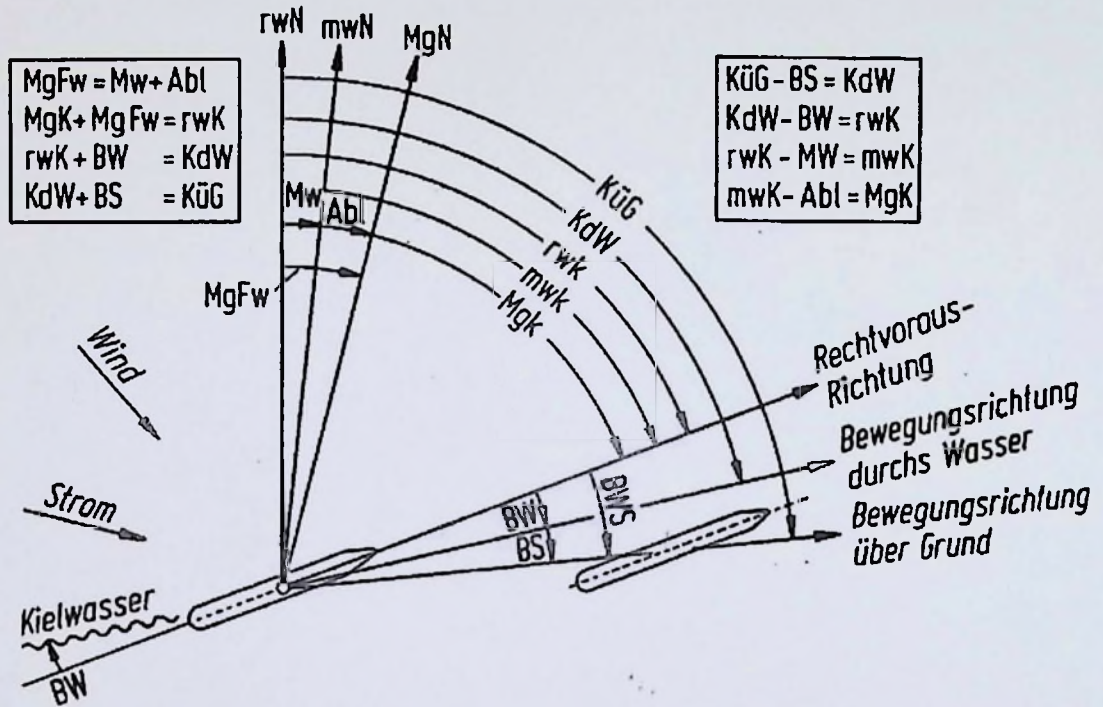 rwN
mwN
MgN
MgFw = Mw + Abl
MgK + MgFw = rwK
rwK + BW = KdW
KdW + BS = KüG
KüG - BS = KdW
KdW - BW = rwK
rwK - MW = mwK
mwK - Abl = MgK
KüG
KdW
rwk
mwk
Mgk
Mw
Abl
MgFw
Wind
Strom
Rechtvoraus-
Richtung
Bewegungsrichtung
durchs Wasser
Bewegungsrichtung
über Grund
BW
BWS
BS
Kielwasser
BW